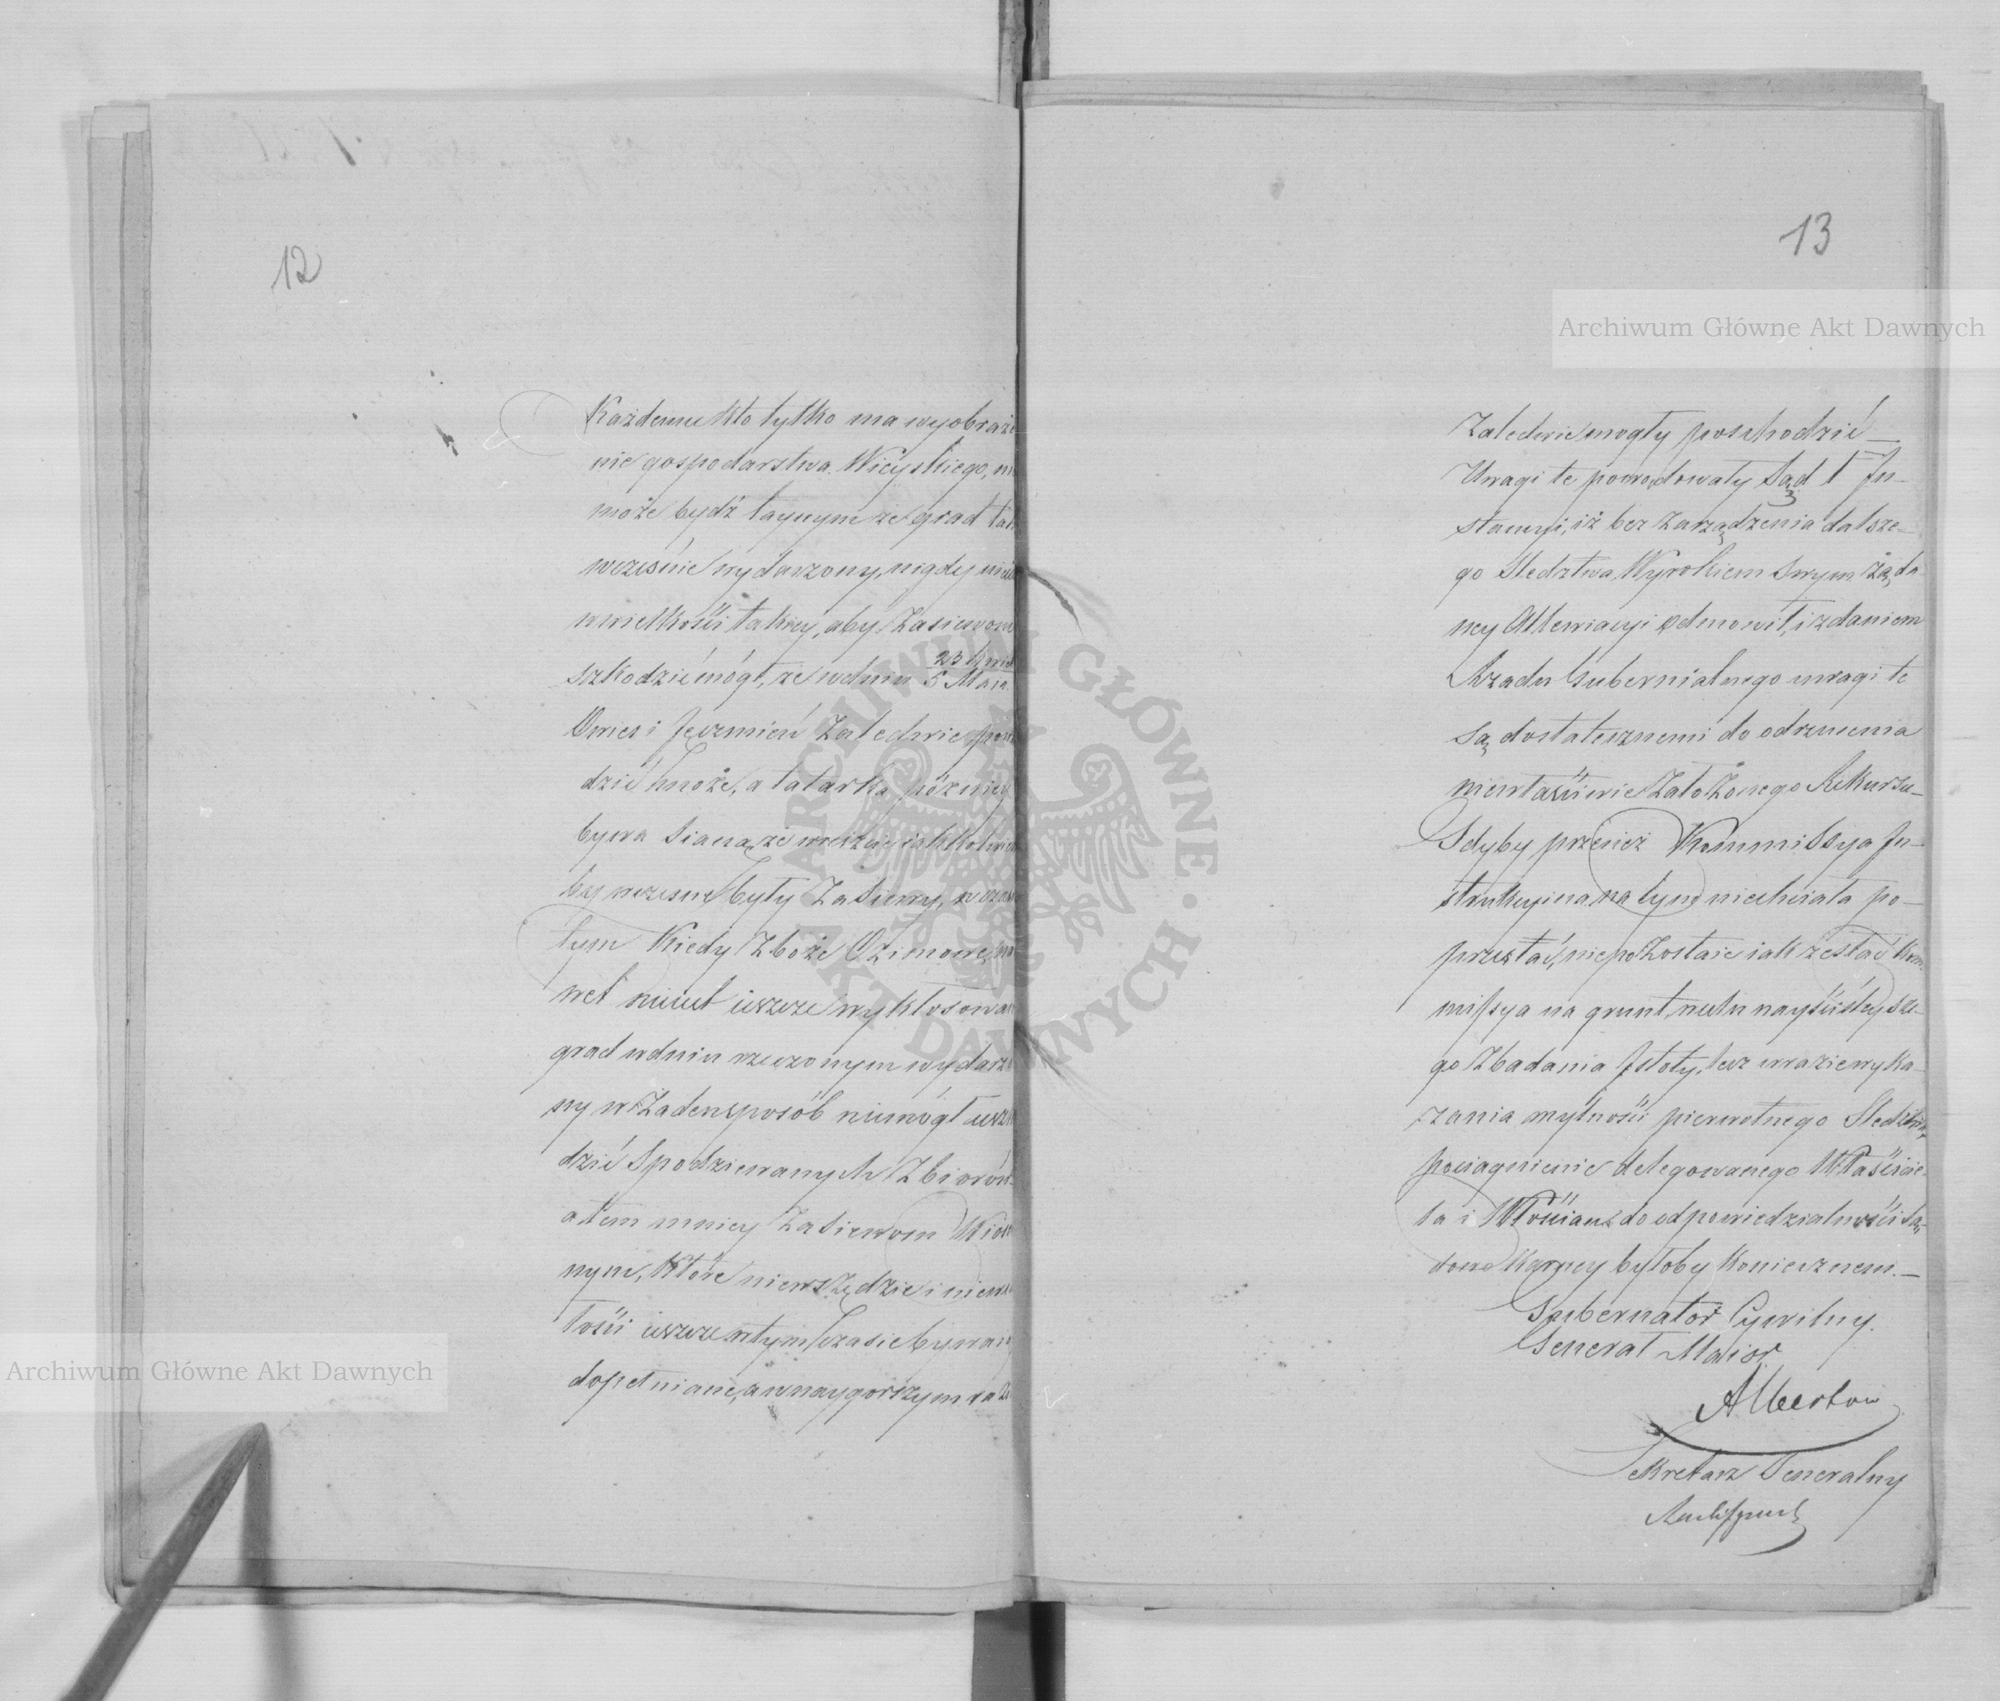 12
Każdemu kto tylko ma wyobraże
nie gospodarstwa Wieyskiego, ni
może bydź taynym że grad tak
wcześnie wydarzony, nigdy nie
wielkości takiey, aby Zasiewom
szkodzić mógł, że w dniu 23 Kwiet / 5 Maia
Owies i Jęczmień Zaledwie pow
dzić może, a tatarka później
bywa Sianą, że wreszcie iakkolwiek
by wczesne były Zasiewy, w czasie
tym kiedy Zboże Ozimowe, na
wet nieiest ieszcze wykłosowan
grad w dniu rzeczonym wydarzo
ny w Żaden sposób niemógł uszko
dzić Spodziewanych Zbiorów
a tem mniey Zasiewom Wios
nym, które niewszędzie i niew
tości ieszcze w tym Czasie bywaią
dopełniane, a w naygorszym razie
13
Zaledwie mogły poschodzić —
Uwagi te powodowały Sąd I In-
stancyi, iż bez Zarządzenia dalsze-
go Sledztwa Wyrokiem Swym żąda-
ney Allewiacyi odmówił, i zdaniem
Rządu Gubernialnego uwagi te
Są dostatecznemi do odrzucenia
niewłaściwie Założonego Rekursu—
Gdyby przecież Kommissya In-
strukcyina na tym niechciała po-
przestać, niepozostaie iak zesłać Kom-
missya na grunt, celu nayściśleysze-
go Zbadania Istoty, lecz w razie wyka-
zania mylności pierwotnego Sledztwa,
pociągnienie delegowanego Właścicie-
la i Włościan do odpowiedzialności Są-
dowo karney byłoby koniecznem. —
Gubernator Cywilny.
Generał Maior
Albertow
Sekretarz Generalny
Archiwum Główne Akt Dawnych
Archiwum Główne Akt Dawnych
ARCHIWUM GŁÓWNE AKT DAWNYCH